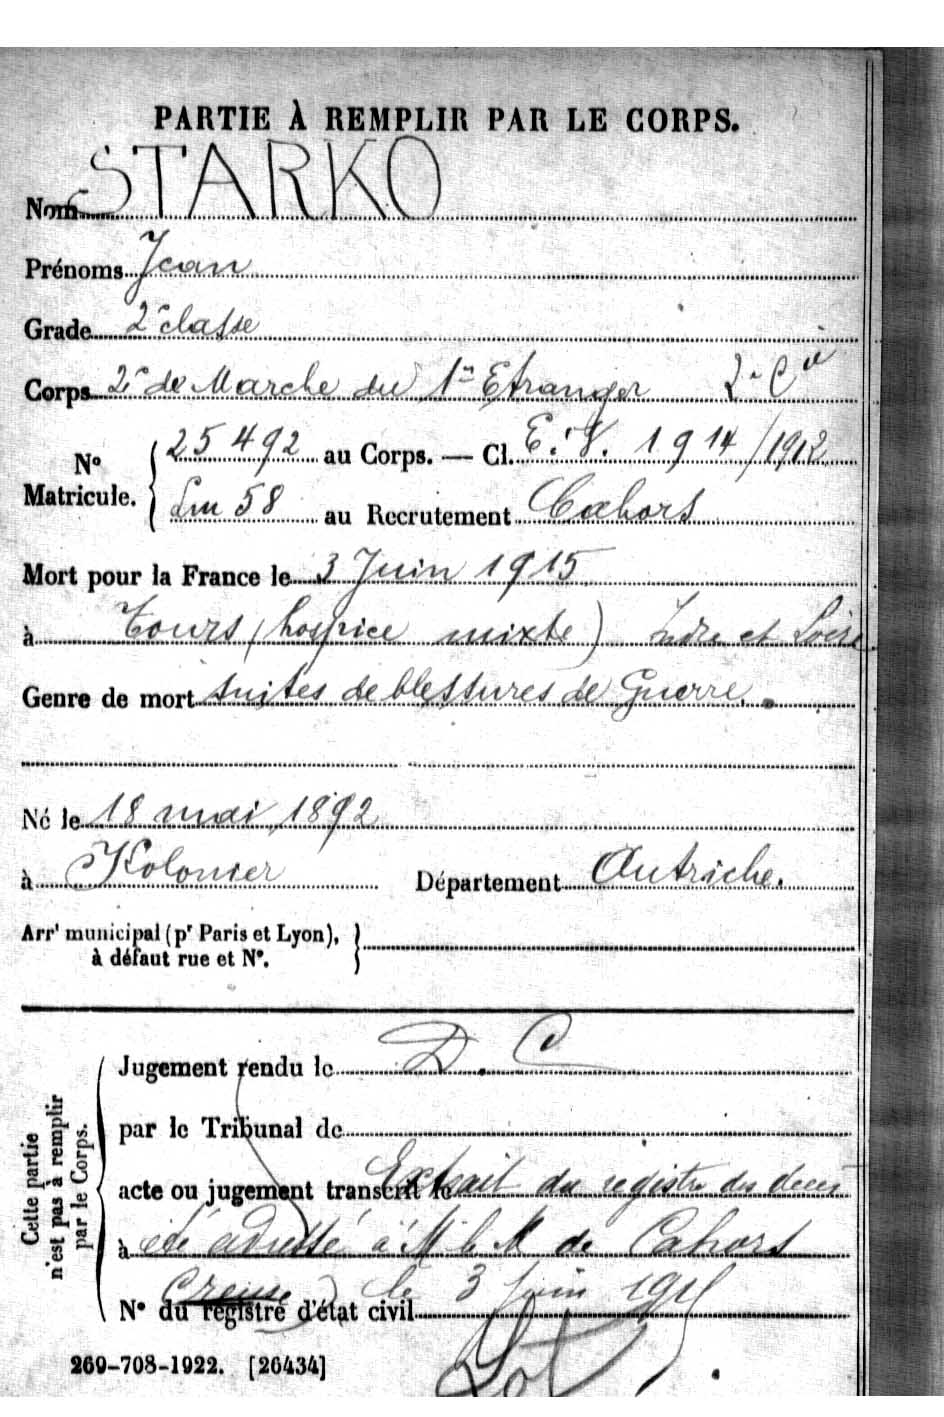 PARTIE À REMPLIR PAR LE CORPS.
Nom STARKO
Prénoms Jean
Grade 2e classe
Corps 2e de Marche du 1er Etranger 2e Cie
N° Matricule. 25492 au Corps. — Cl. E.V. 1914/1912
Lm 58 au Recrutement Cahors
Mort pour la France le 3 Juin 1915
à Tours (hospice mixte) Indre et Loire
Genre de mort suites de blessures de Guerre.
Né le 18 mai 1892
à Kolonier Département Autriche.
Arrt municipal (pr Paris et Lyon),
à défaut rue et N°.
Cette partie
n'est pas à remplir
par le Corps.
Jugement rendu le D.C
par le Tribunal de
acte ou jugement transcrit le Extrait du registre des décès
à été adressé à M le M de Cahors
Creuse) le 3 juin 1915
N° du registre d'état civil
Lot
269-708-1922. [26434]